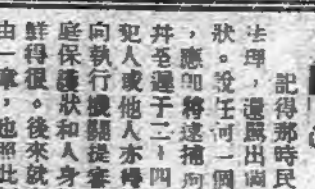 記得那時民
法理，還與出
狀。說任何一個
，應即將逮捕
幷至遲于二十四
犯人或他人亦得
向執行機關提審
庭保護狀和人身
鮮得很。後來就
由一章，也照此